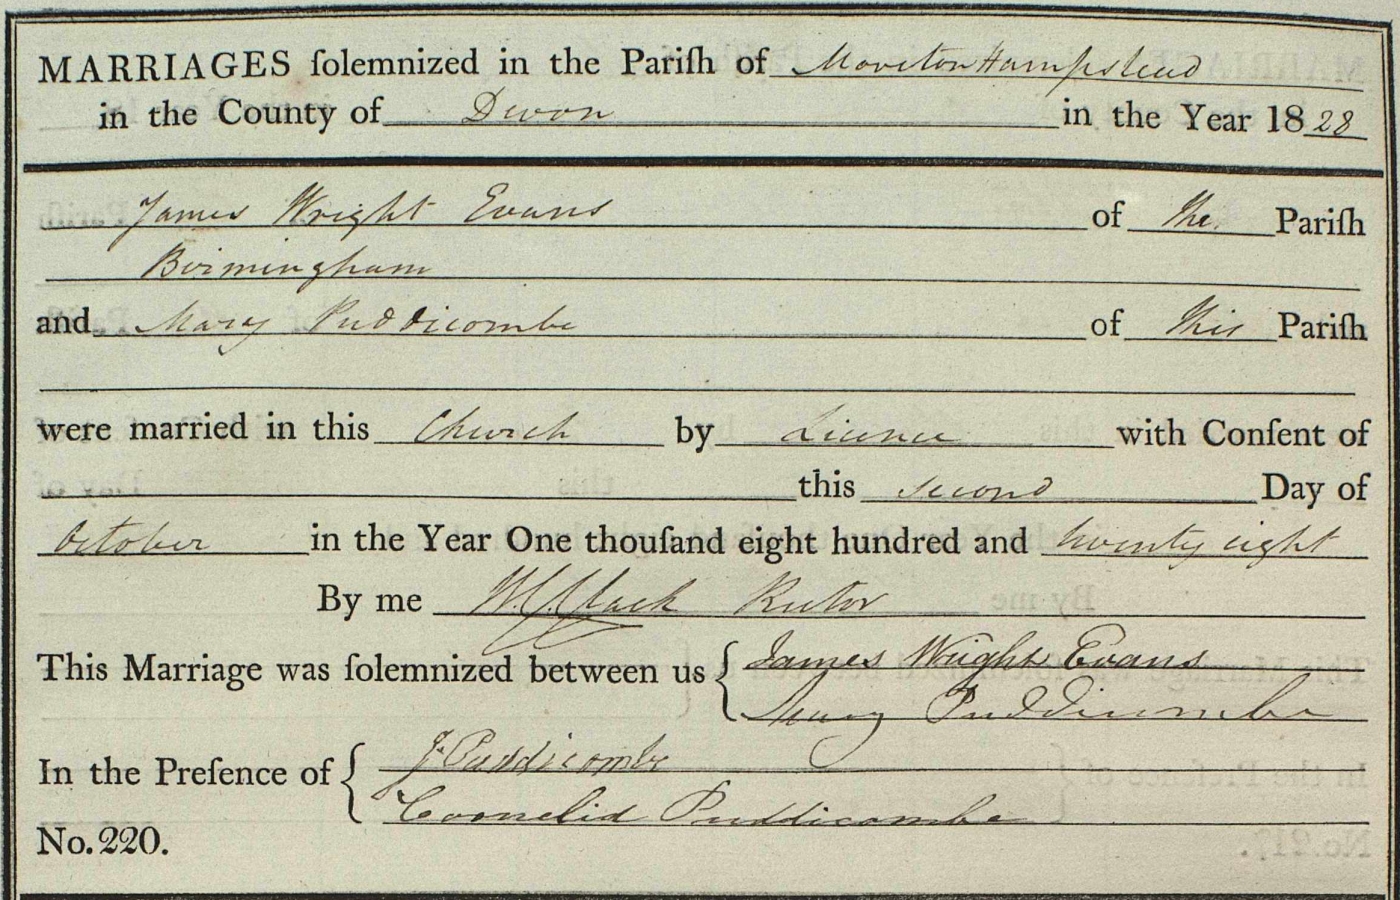 MARRIAGES ſolemnized in the Pariſh of Moreton Hampstead
in the County of Devon in the Year 1828
James Wright Evans of the Pariſh
Birmingham
and Mary Puddicombe of this Pariſh
were married in this Church by Licence with Conſent of
this second Day of
October in the Year One thouſand eight hundred and twenty eight
By me Rector
This Marriage was ſolemnized between us { James Wright Evans
Mary Puddicombe
In the Preſence of { J. Puddicombe
Cornelia Puddicombe
No. 220.